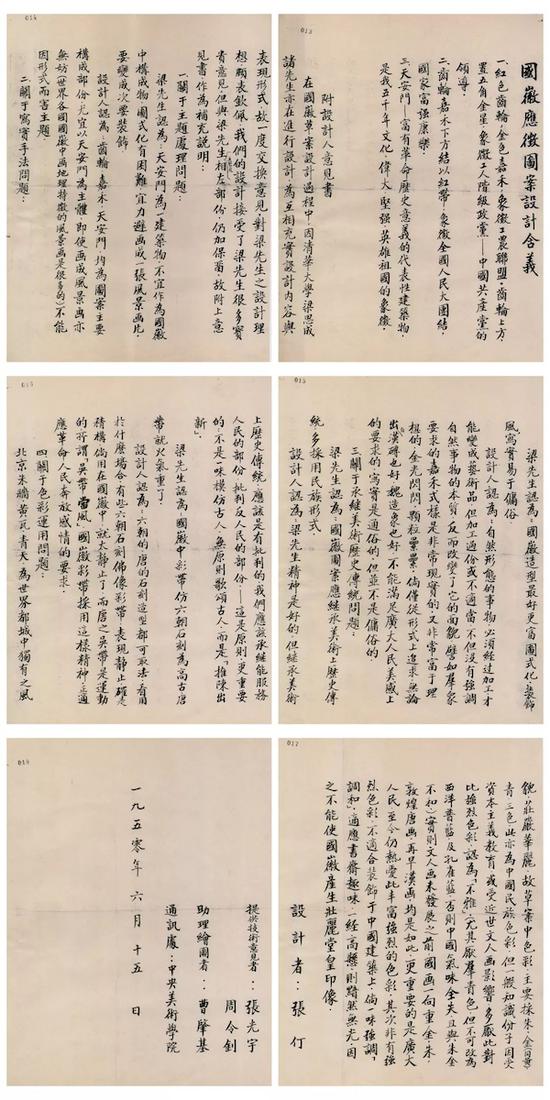 013
國徽應徵圖案設計含義
一、紅色齒輪,金色嘉禾,象徵工農聯盟。齒輪上方,
置五角金星,象徵工人階級政黨——中國共產黨的
領導。
二、齒輪嘉禾下方結以紅帶——象徵全國人民大團結,
國家富强康樂。
三、天安門——富有革命歷史意義的代表性建築物,
是我五千年文化,偉大堅强,英雄祖國的象徵。
附設計人意見書
在國徽草案設計過程中,因清華大學梁思成
諸先生亦在進行設計,為互相充實設計內容與
014
表現形式,故一度交換意見,對梁先生之設計理
想,頗表欽佩。我們的設計接受了梁先生很多寶
貴意見,但與梁先生相左部份,仍加保留,故附上意
見書作為補充說明:
一.關于主題處理問題:
梁先生認為:天安門為一建築物,不宜作為國徽
中構成物,圖式化有困難,宜力避画成一張風景画片,
要變成次要裝飾。
設計人認為:齒輪、嘉禾、天安門,均為圖案主要
構成部份,尤宜以天安門為主體,即使画成風景画亦
無妨(世界各國國徽中画地理特徵的風景画是很多的)不能
因形式而害主題。
二.關于寫實手法問題:
015
梁先生認為:國徽造型最好更富圖式化、裝飾
風,寫實易于傭俗。
設計人認為:自然形態的事物,必須經过加工才
能變成藝術品,但加工过份或不適當,不但沒有强調
自然事物的本質,反而改變了它的面貌,譬如羣眾
要求的嘉禾式樣是非常現實的,又非常富于理
想的,金光閃閃,顆粒纍纍,倘僅從形式上追求,無論
出漢磚也好,魏造象也好,不能滿足廣大人民美感上
的要求的,寫實是通俗的,但並不是傭俗的。
三.關于承継美術歷史傳統問題:
梁先生認為:國徽圖案應継承美術上歷史傳
統,多採用民族形式。
設計人認為:梁先生精神是好的,但継承美術
上歷史傳統,應該是有批判的,我們應該承継能服務
人民的部份,批判反人民的部份——這是原則,更重要
的:不是一味模仿古人,無原則歌頌古人,而是「推陳出
新」。
梁先生認為:國徽中彩帶仿六朝石刻為高古,唐
帶就火氣重了。
設計人認為:六朝的、唐的石刻造型都可取法,看用
於什麼場合,有些六朝石刻佛像彩帶,表現靜止,確是
精構,倘用在國徽中,就太靜止了,而唐之吳帶是運動
的,所謂「吳帶當風」,國徽彩帶採用這樣精神,正適
應革命人民奔放感情的要求。
四.關于色彩運用問題:
北京朱牆、黃瓦、青天,為世界都城中獨有之風
017
貌,莊嚴華麗,故草案中色彩,主要採朱、金(同黃)
青三色,此亦為中國民族色彩,但一般知識份子因受
資本主義教育,或受近世文人画影響,多厭此對
比强烈色彩,認為「不雅」(尤其厭羣青色,但不可改為
西洋普藍及孔雀藍,否則中國氣味全失,且與朱金
不和)實則文人画未發展之前,國画一向重金、朱,
敦煌唐画,再早漢画,均是如此,更重要的是廣大
人民,至今仍熱愛此丰富强烈的色彩,其次非有强
烈色彩,不適合裝飾于中國建築上,倘一味强調
「調和」,適應書齋趣味,一經高懸,則黯然無光,因
之不能使國徽產生壯麗堂皇印像。
設計者:張仃
018
提供技術意見者:張光宇
周令釗
助理繪圖者:曹肇基
通訊處:中央美術學院
一九五零年六月十五日